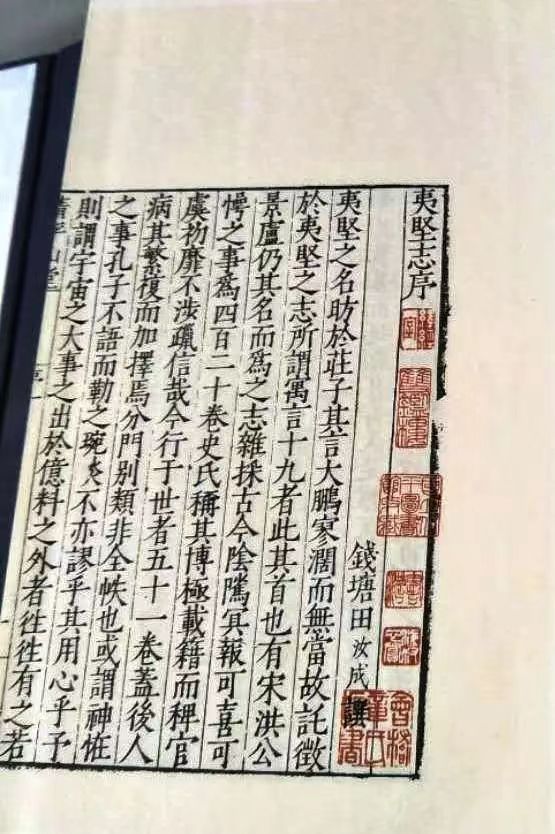 夷堅志序
錢塘田汝成譔
夷堅之名昉於莊子其言大鵬寥濶而無當故託徵
於夷堅之志所謂寓言十九者此其首也有宋洪公
景廬仍其名而為之志雜採古今陰隲冥報可喜可
愕之事為四百二十卷史氏稱其博極載籍而稗官
虞初靡不涉躐信哉今行于世者五十一卷蓋後人
病其繁復而加擇焉分門別類非全帙也或謂神怪
之事孔子不語而勒之琬琰不亦謬乎其用心乎予
則謂宇宙之大事之出於億料之外者往往有之若
清平山堂